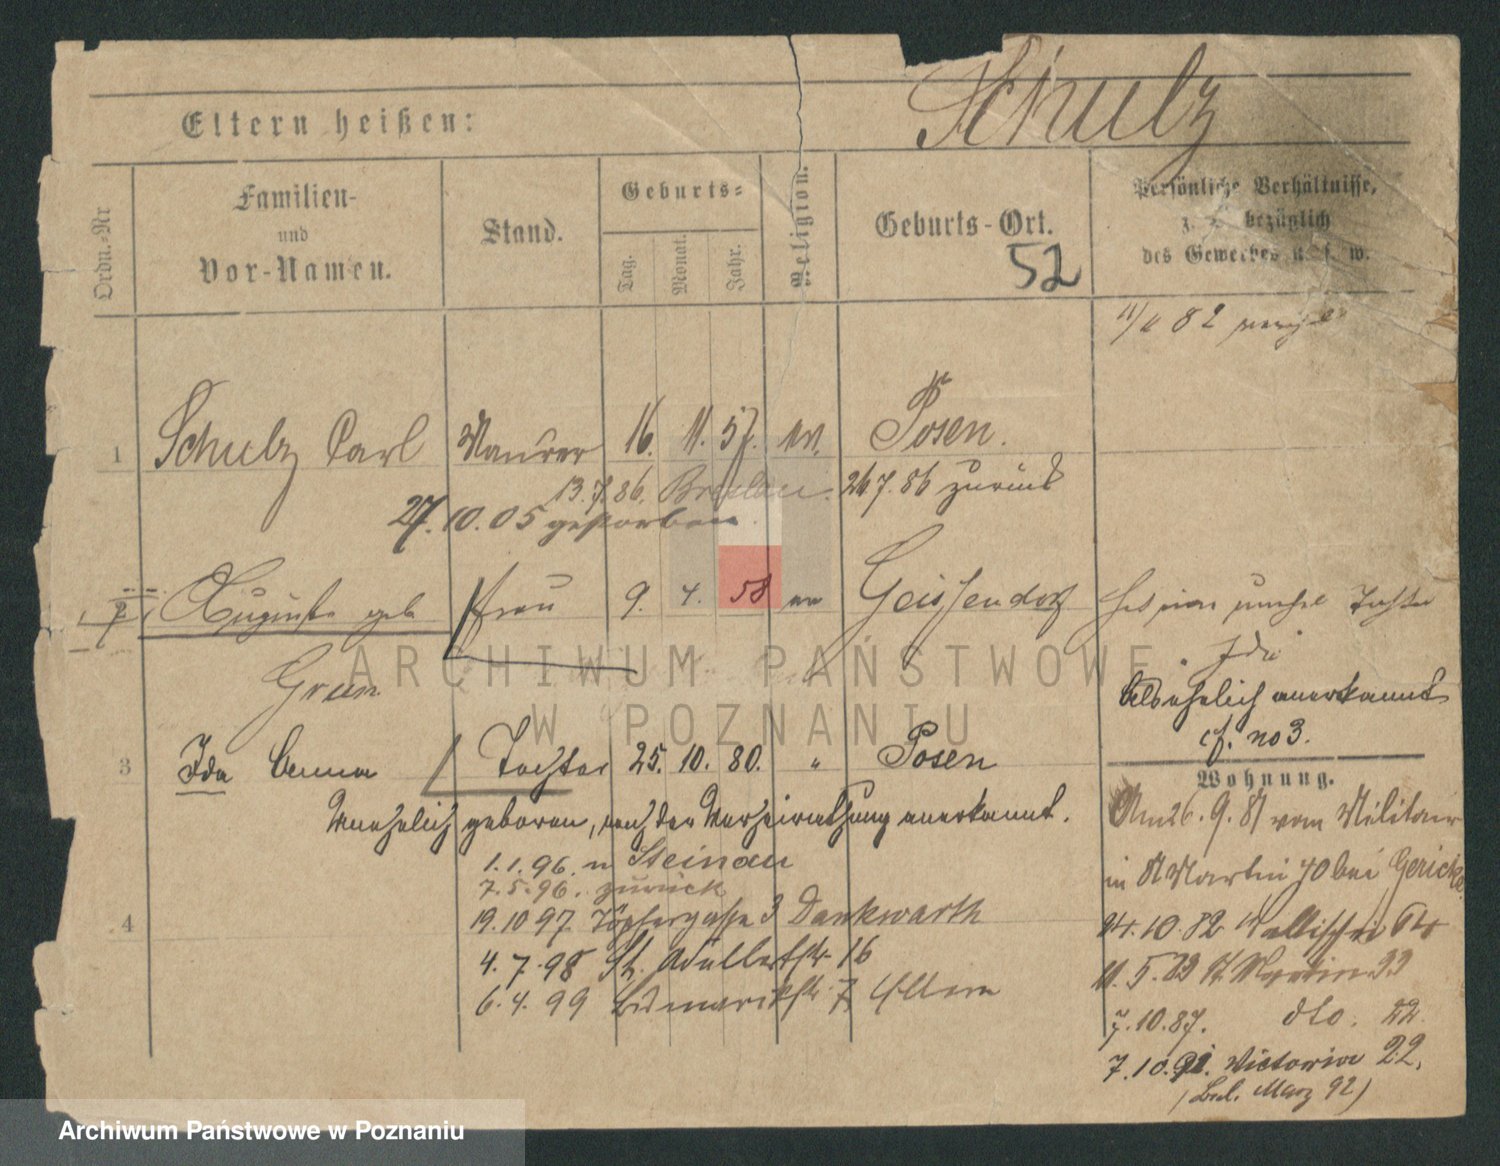 Schulz
Eltern heißen:
Ordn.-Nr
Familien-
und
Vor-Namen.
Stand.
Geburts-
Tag.
Monat.
Jahr.
Religion.
Geburts-Ort.
52
Persönliche Verhältnisse,
z. B. bezüglich
des Gewerbes u. s. w.
82
1 Schulz Carl Maurer 16. 11. 57. ev. Posen.
13.7.86. Breslau. 26.7.86 zurück
27.10.05 gestorben.
2 Auguste geb. Frau 9. 4. 58 ev Geissendorf
Grun
Tochter
Ida
als ehelich anerkannt
cf. no 3.
3 Ida Emma Tochter 25. 10. 80. " Posen
Unehelich geboren, nach der Verheirathung anerkannt.
1.1.96. n Steinau
7.5.96. zurück
4
19.10.97. Töpfergasse 3 Dankwarth
4.7.98 St. Adalbertstr. 16
6.4.99 Bismarckstr. 7 Eltern
Wohnung.
Am 26.9.81 vom Militair
in St Martin 70 bei Gericke
24.10.82 Wallischei 64
11.5.83 St Martin 33
7.10.87. dto. 22.
7.10.91. Victoria 22.
(Bel. März 92)
ARCHIWUM PAŃSTWOWE
W POZNANIU
Archiwum Państwowe w Poznaniu